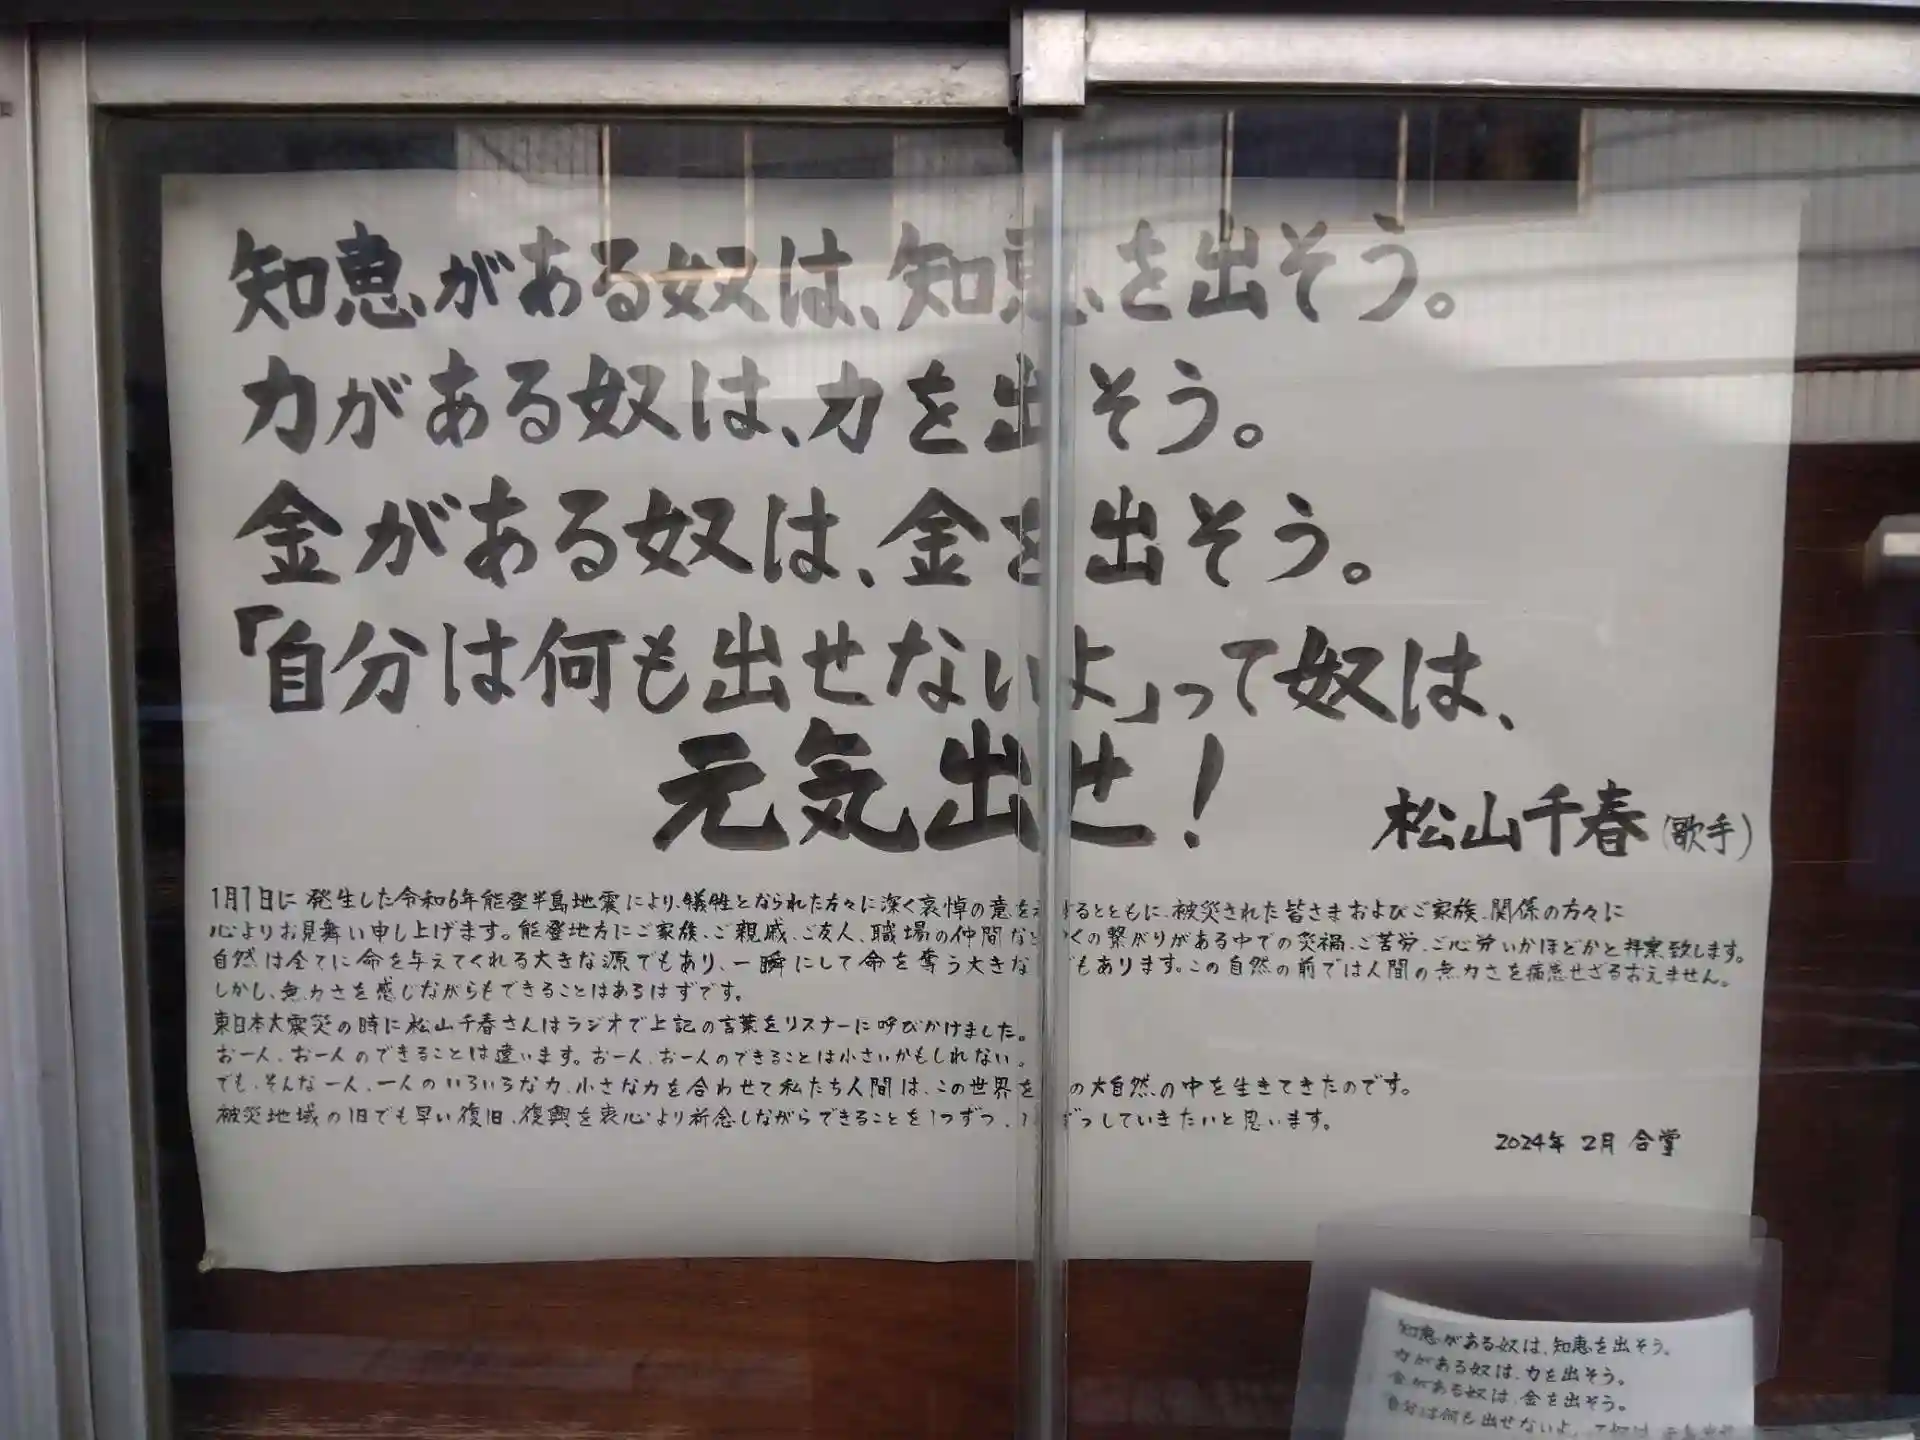 知恵がある奴は、知恵を出そう。
力がある奴は、力を出そう。
金がある奴は、金を出そう。
「自分は何も出せないよ」って奴は、
元気出せ!
松山千春(歌手)
1月1日に発生した令和6年能登半島地震により、犠牲となられた方々に深く哀悼の意を するとともに、被災された皆さまおよびご家族、関係の方々に
心よりお見舞い申し上げます。能登地方にご家族、ご親戚、ご友人、職場の仲間など くの繋がりがある中での災禍、ご苦労、ご心労いかほどかと拝察致します。
自然は全てに命を与えてくれる大きな源でもあり、一瞬にして命を奪う大きな でもあります。この自然の前では人間の無力さを痛感せざるおえません。
しかし、無力さを感じながらもできることはあるはずです。
東日本大震災の時に松山千春さんはラジオで上記の言葉をリスナーに呼びかけました。
お一人、お一人のできることは違います。お一人、お一人のできることは小さいかもしれない。
でも、そんな一人、一人のいろいろな力、小さな力を合わせて私たち人間は、この世界を の大自然の中を生きてきたのです。
被災地域の1日でも早い復旧、復興を衷心より祈念しながらできることを1つずつ、1 ずつしていきたいと思います。
2024年 2月 合掌
知恵がある奴は、知恵を出そう。
力がある奴は、力を出そう。
金がある奴は、金を出そう。
自分は何も出せないよ